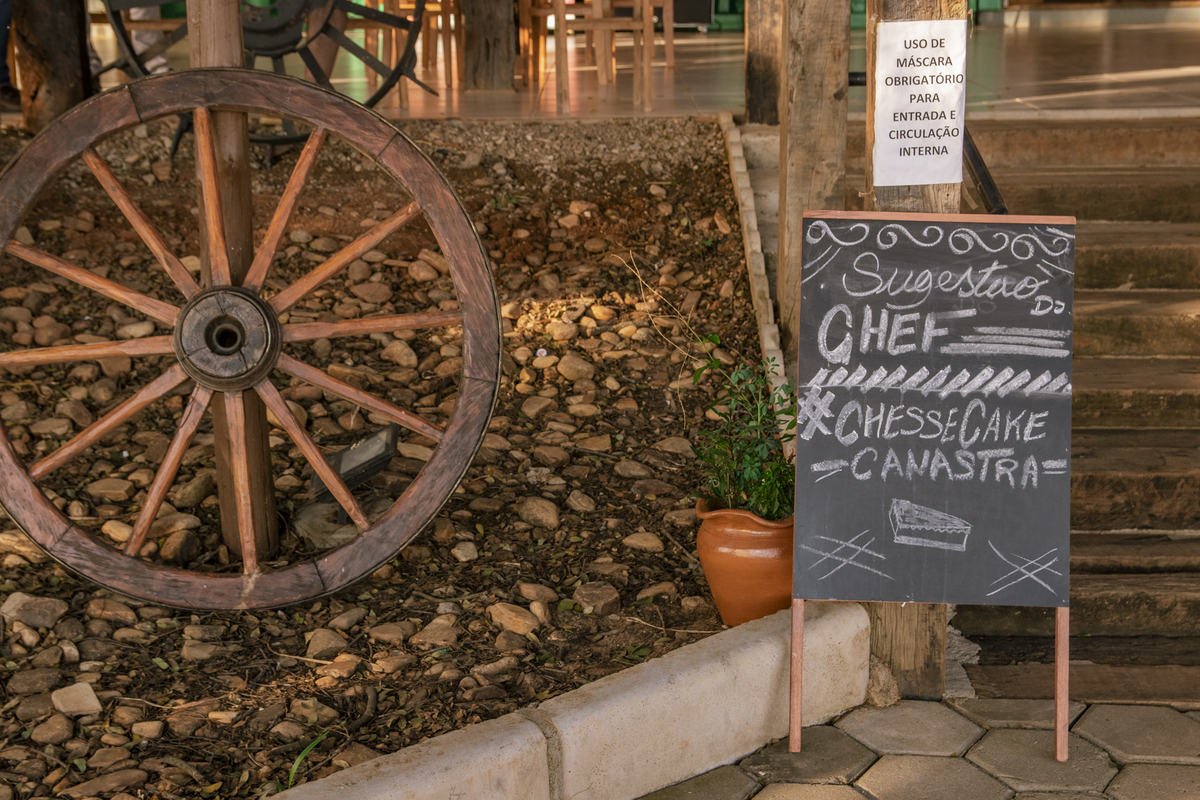 USO DE
MÁSCARA
OBRIGATÓRIO
PARA
ENTRADA E
CIRCULAÇÃO
INTERNA
Sugestao
Do
CHEF
#CHESSECAKE
-CANASTRA-